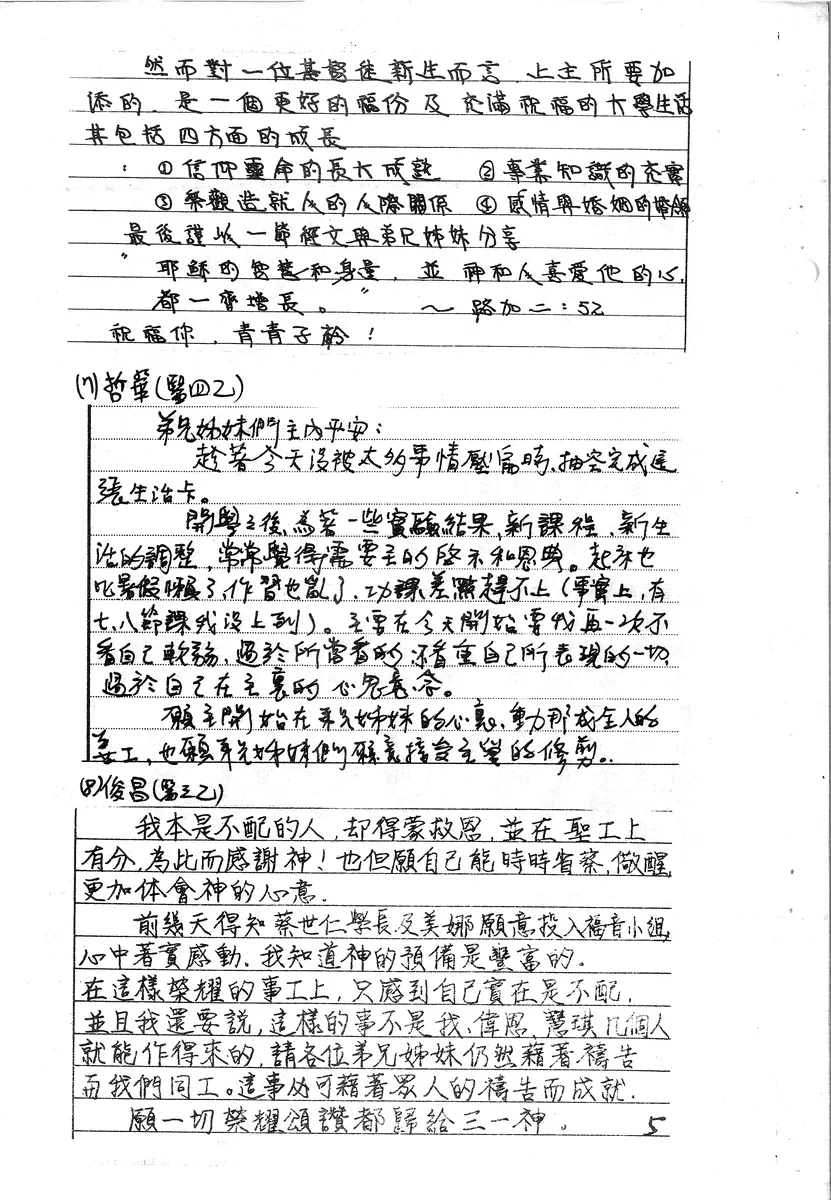 然而對一位基督徒新生而言，上主所要加
添的，是一個更好的福份及充滿祝福的大學生活
其包括四方面的成長
：①信仰靈命的長大成熟 ②專業知識的充實
③樂觀造就人的人際關係 ④感情與婚姻的
最後謹以一節經文與弟兄姊妹分享
"耶穌的智慧和身量，並神和人喜愛他的心，
都一齊增長。" ～路加二：52
祝福你，青青子衿！
(7)哲華(醫四乙)
弟兄姊妹們主內平安：
趁著今天沒被太多事情壓傷時，抽空完成這
張生活卡。
開學之後，為著一些實驗結果，新課程，新生
活的調整，常常覺得需要主的啓示和恩典。起床也
比暑假懶了，作習也亂了，功課差點趕不上(事實上，有
七、八節課我沒上到)。主要在今天開始要我再一次不
看自己軟弱，過於所當看的，不看重自己所表現的一切，
過於自己在主裏的心思意念。
願主開始在弟兄姊妹的心裏，動那成全人的
善工，也願弟兄姊妹們願意接受主愛的修剪。
(8)俊昌(醫三乙)
我本是不配的人，却得蒙救恩，並在聖工上
有分，為此而感謝神！也但願自己能時時省察，儆醒，
更加体會神的心意．
前幾天得知蔡世仁學長及美娜願意投入福音小組，
心中著實感動．我知道神的預備是豐富的．
在這樣榮耀的事工上，只感到自己實在是不配．
並且我還要說，這樣的事不是我、偉恩、慧琪几個人
就能作得來的，請各位弟兄姊妹仍然藉著禱告
與我們同工。這事必可藉著眾人的禱告而成就．
願一切榮耀頌讚都歸給三一神。
5